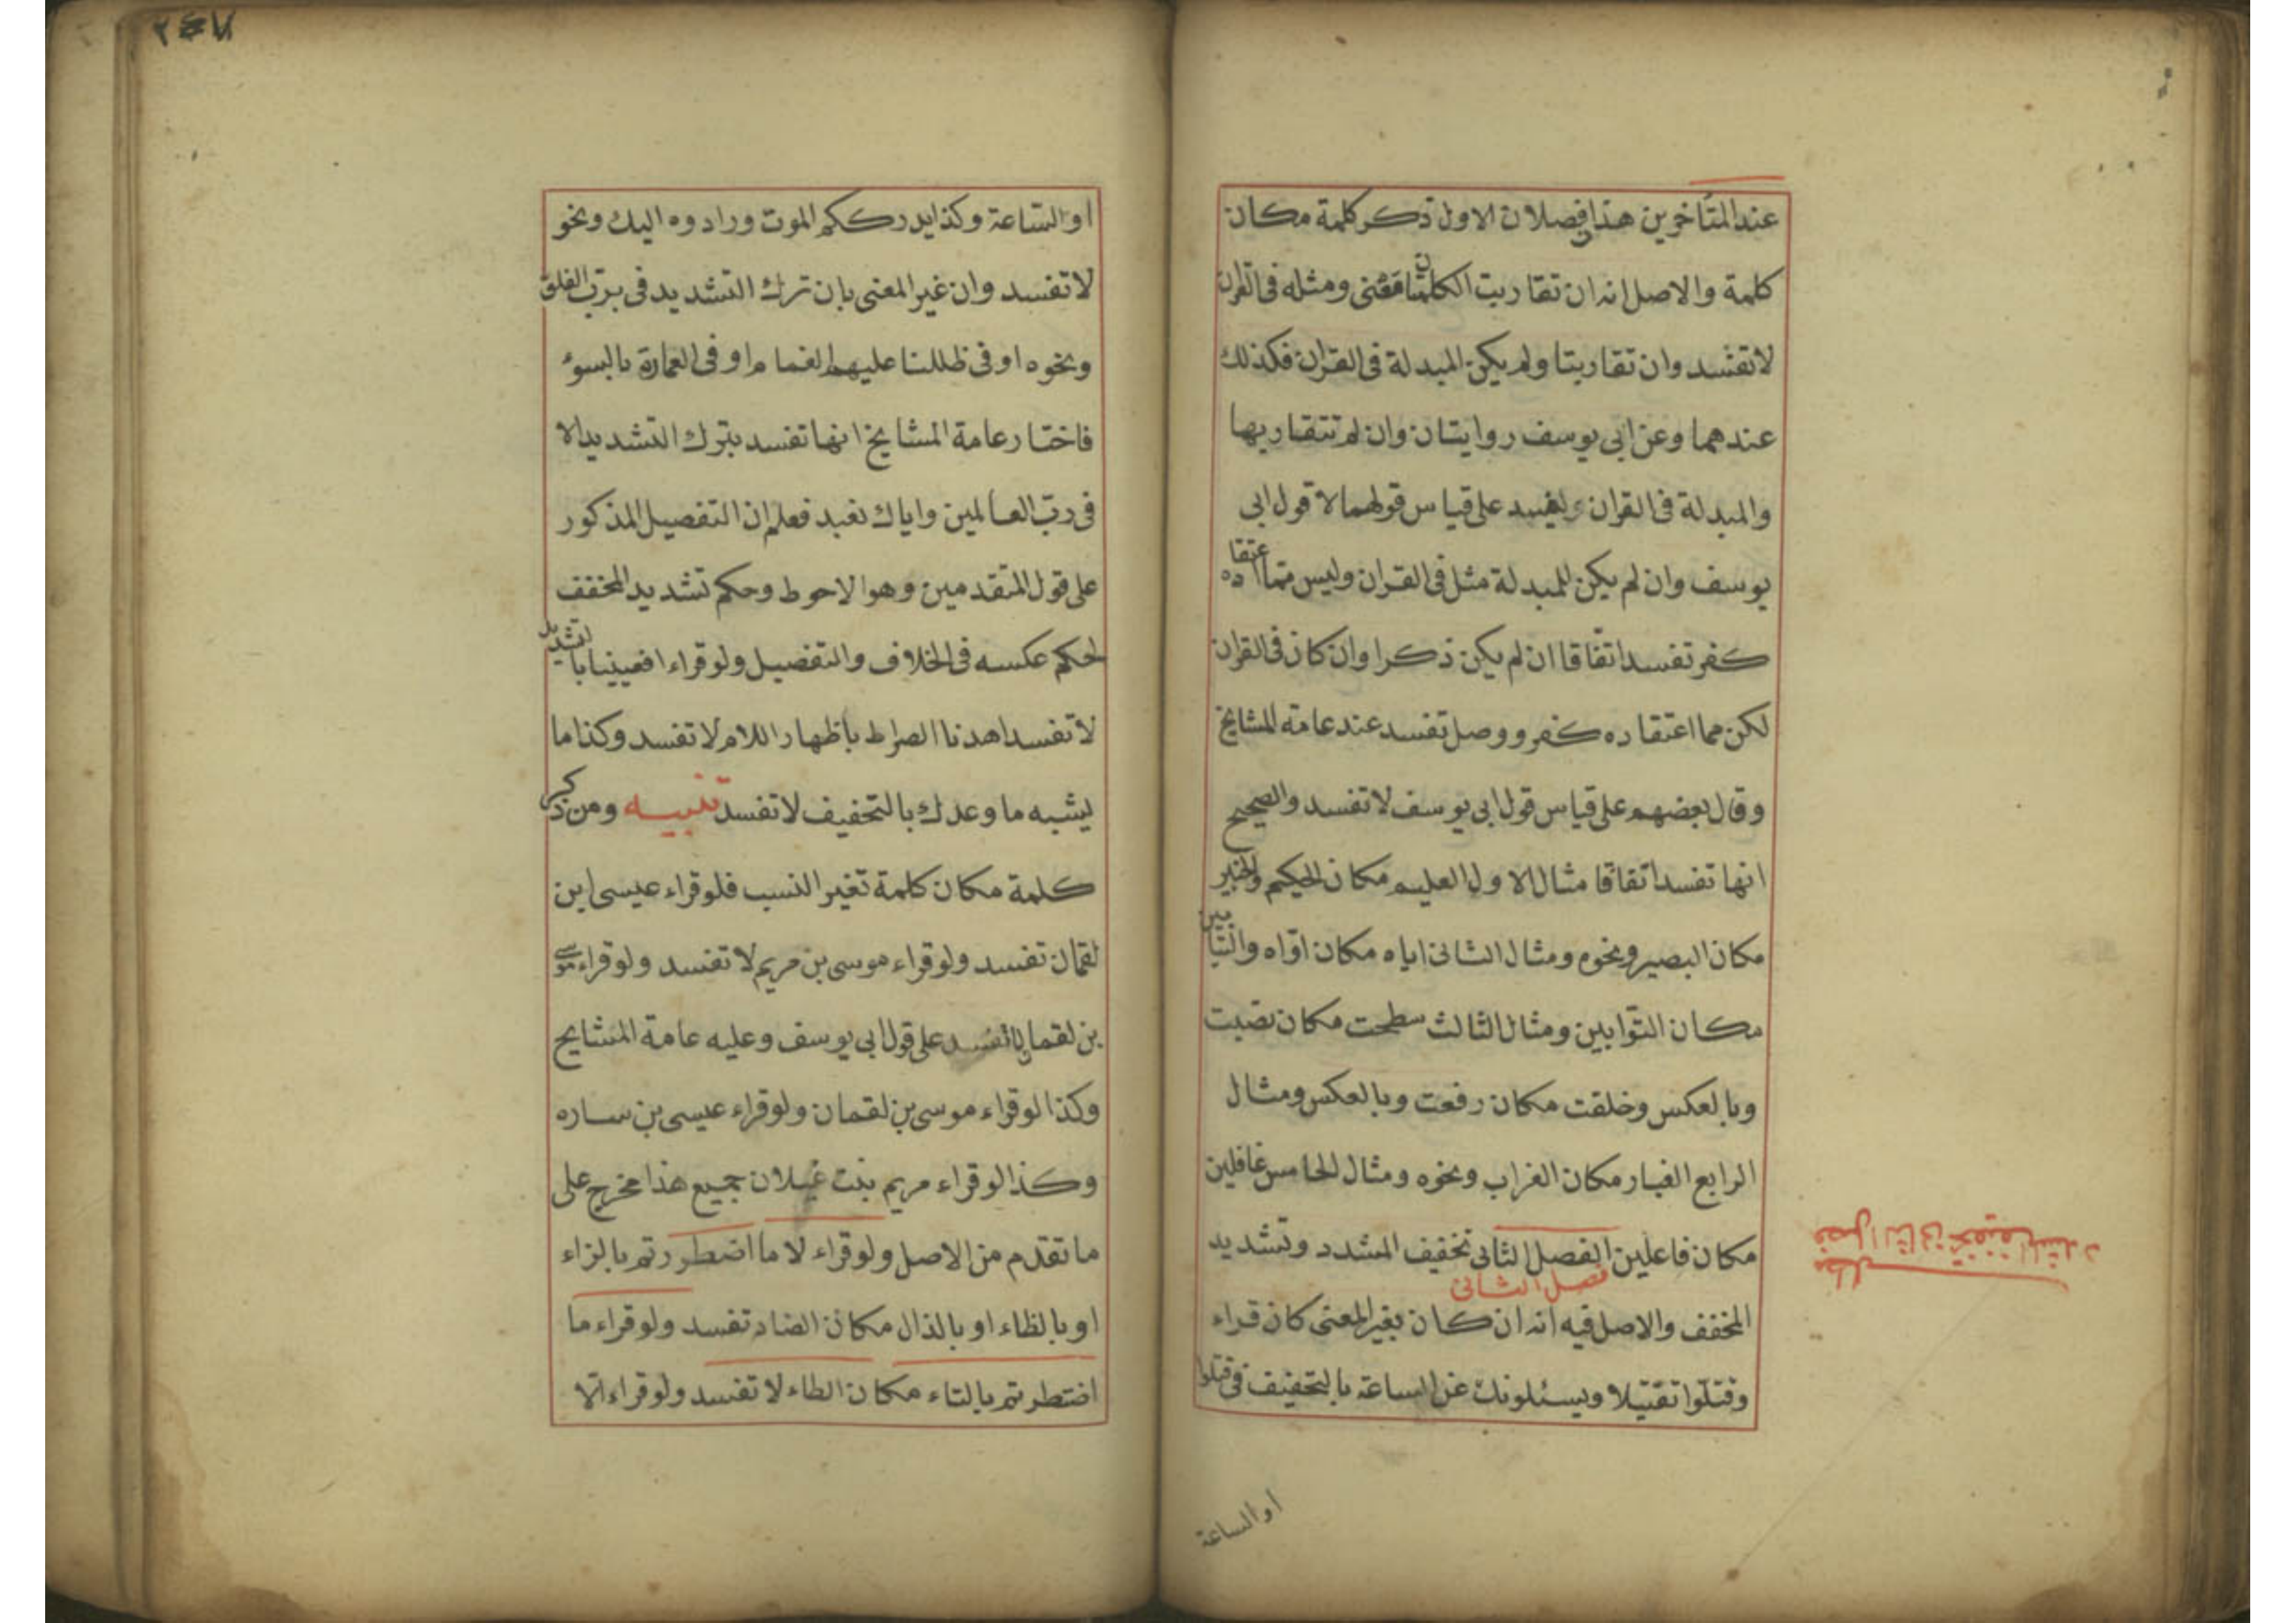 عند المتأخرين هذا فصلان الاول ذكر كلمة مكان
كلمة والاصل انه ان تقاربت الكلمتان معنى ومثله فى القران
لاتفسد وان تقاربتا ولم يكن المبدلة فى القران فكذلك
عندهما وعن ابى يوسف روايتان وان لم تتقاربها
والمبدلة فى القران تفسد على قياس قولهما لا قول ابى
يوسف وان لم يكن للمبدلة مثل فى القران وليس مما اعتقاده
كفر تفسد اتفاقا ان لم يكن ذكرا وان كان فى القران
لكن مما اعتقاده كفر ووصل تفسد عند عامة المشايخ
وقال بعضهم على قياس قول ابى يوسف لا تفسد والصحيح
انها تفسد اتفاقا مثال الاول العليم مكان الحكيم والخبير
مكان البصير ونحوه ومثال الثانى اياه مكان اوّاه والتيابين
مكان التوّابين ومثال الثالث سطحت مكان نصبت
وبالعكس وخلقت مكان رفعت وبالعكس ومثال
الرابع الغبار مكان الغراب ونحوه ومثال الخامس غافلين
مكان فاعلين الفصل الثانى تخفيف المشدد وتشديد
فصل الثانى
المخفف والاصل فيه انه ان كان بغير المعنى كان قراء
وقتلوا تقتيلا ويسئلونك عن الساعة بالتخفيف فى قتلوا
او الساعة
مطلب
فصل الثانى تخفيف المشدد
٢٤٧
او الساعة وكذا يدرككم الموت ورادوه اليك ونحو
لاتفسد وان غير المعنى بان ترك التشديد فى برب الفلق
ونحوه او فى ظللنا عليهم الغمام او فى لامارة بالسوء
فاختار عامة المشايخ انها تفسد بترك التشديد الا
فى ربّ العالمين واياك نعبد فعلم ان التفصيل المذكور
على قول المتقدمين وهو الاحوط وحكم تشديد المخفف
لحكم عكسه فى الخلاف والتفصيل ولو قراء افعيينا بالتشديد
لاتفسد اهدنا الصراط باظهار اللام لا تفسد وكذا ما
يشبه ما وعدك بالتخفيف لا تفسد تنبيه ومن ذكر
كلمة مكان كلمة تغير النسب فلو قراء عيسى ابن
لقمان تفسد ولو قراء موسى بن مريم لا تفسد ولو قراء موسى
بن لقمان لا تفسد على قول ابى يوسف وعليه عامة المشايخ
وكذا لو قراء موسى بن لقمان ولو قراء عيسى بن ساره
وكذا لو قراء مريم بنت غيلان جميع هذا مخرج على
ما تقدم من الاصل ولو قراء لا ما اضطررتم بالزاء
او بالظاء او بالذال مكان الضاد تفسد ولو قراء ما
اضتطررتم بالتاء مكان الطاء لا تفسد ولو قراء الا